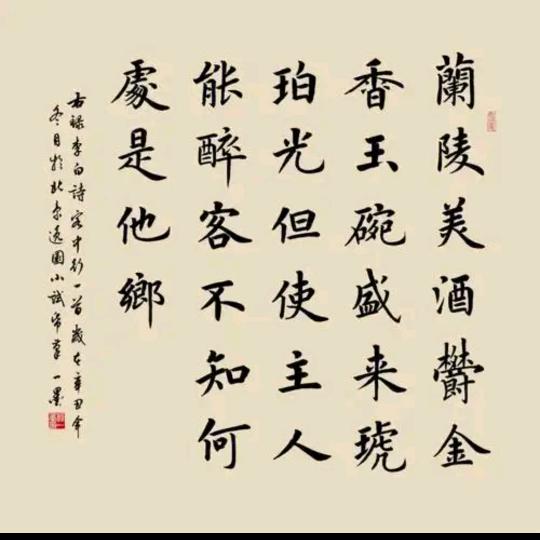 蘭陵美酒鬱金
香玉碗盛来琥
珀光但使主人
能醉客不知何
處是他鄉
右録李白詩客中行一首歲在辛丑年
冬月於北京園小試筆一墨